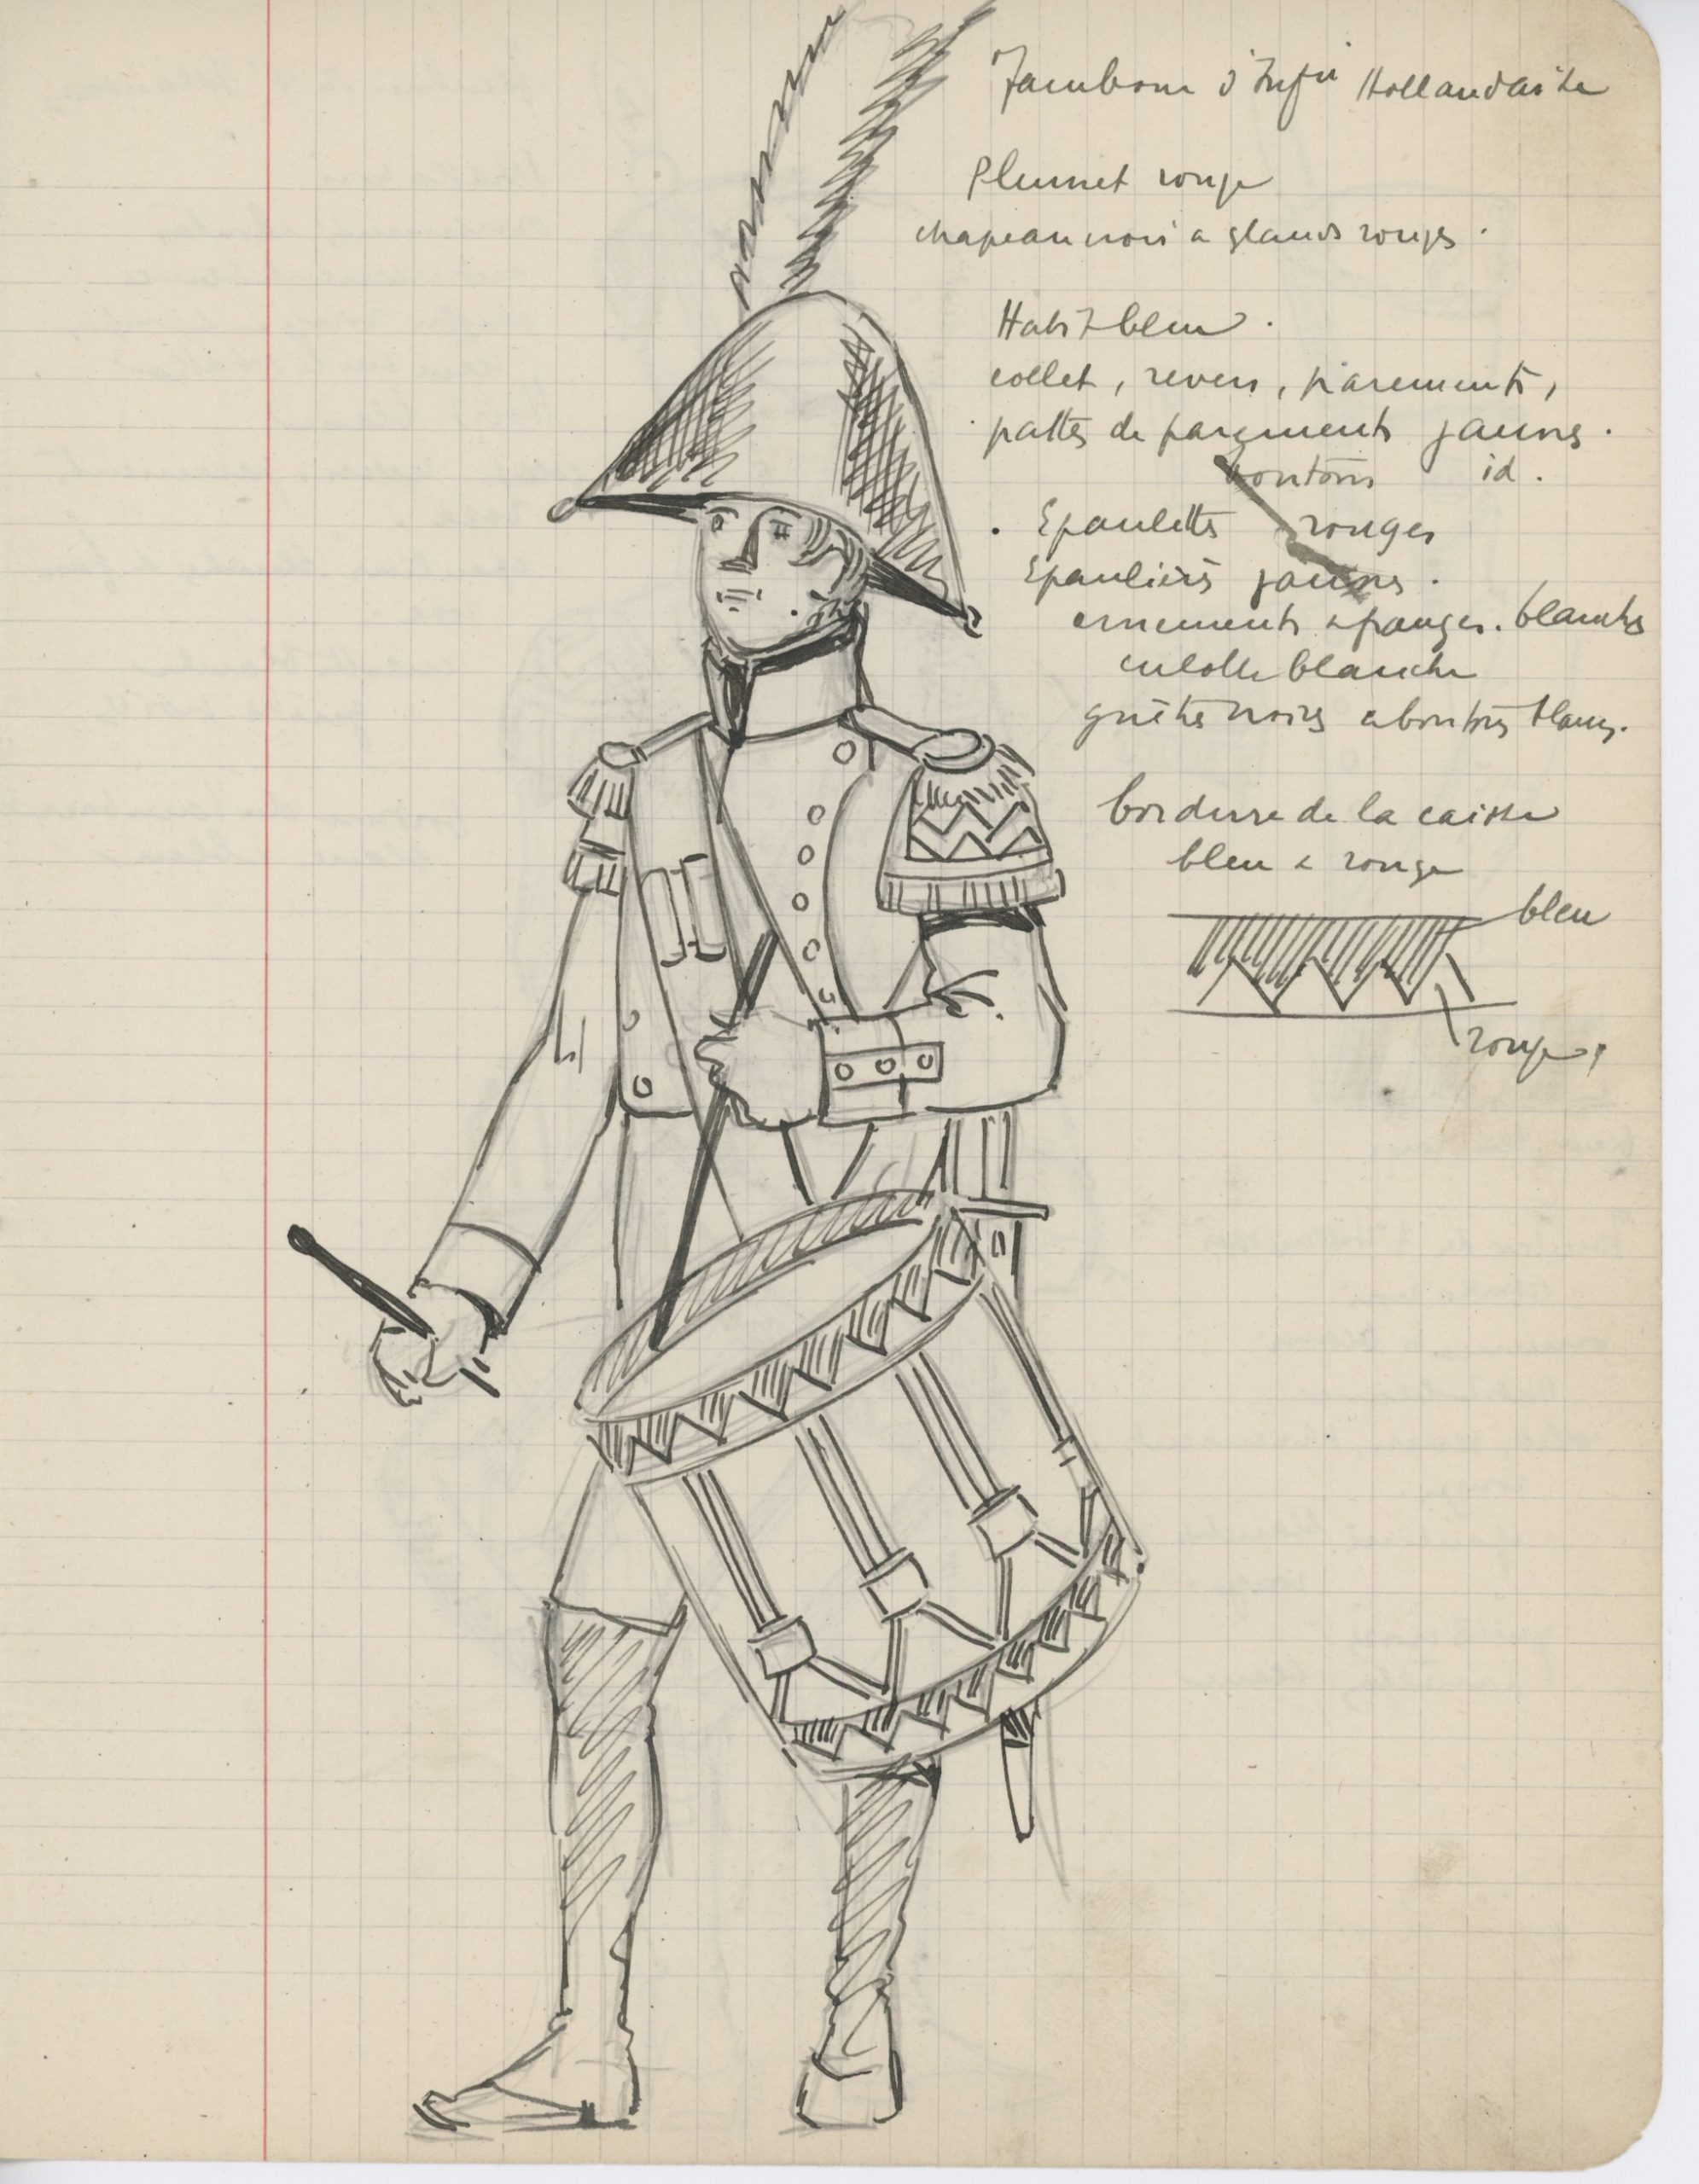 Tambour d'Infie Hollandaise
Plumet rouge
chapeau noir a glands rouges.
Habit bleu.
collet, revers, parements,
pattes de parements jaunes.
boutons id.
Epaulettes rouges
Epauliers jaunes.
ornements & franges. blanches
culotte blanche
guêtres noires a boutons blancs.
bordure de la caisse
bleu & rouge
bleu
rouge